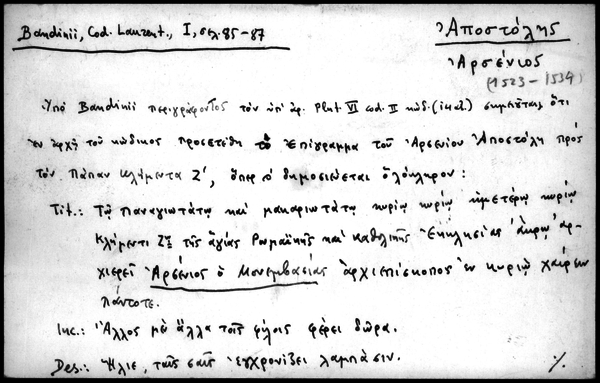 Bandinii, Cod. Laurent., I, σελ. 85-87
Ἀποστόλης
Ἀρσένιος
(1523-1534)
Ὑπὸ Bandinii περιγράφοντος τὸν ὑπ' ἀρ. Plut. VI cod. II κώδ. σημειοῦται, ὅτι
ἐν ἀρχῇ τοῦ κώδικος προσετέθη τὸ ἐπίγραμμα τοῦ Ἀρσενίου Ἀποστόλη πρὸς
τὸν Πάπαν Κλήμεντα Ζ', ὅπερ δημοσιεύεται ὁλόκληρον:
Tit.: Τῷ παναγιωτάτῳ καὶ μακαριωτάτῳ κυρίῳ κυρίῳ ἡμετέρῳ κυρίῳ
Κλήμεντι Ζῳ τῆς ἁγίας Ῥωμαϊκῆς καὶ καθολικῆς Ἐκκλησίας ἄκρῳ ἀρ-
χιερεῖ Ἀρσένιος ὁ Μονεμβασίας ἀρχιεπίσκοπος ἐν κυρίῳ χαίρειν
πάντοτε.
Inc.: Ἄλλος μὲ ἄλλα τοῖς φίλοις φέρει δῶρα.
Des.: Ἥλιε, ταῖς σαῖς ἐγχρονίζει λαμπάσιν.
./.